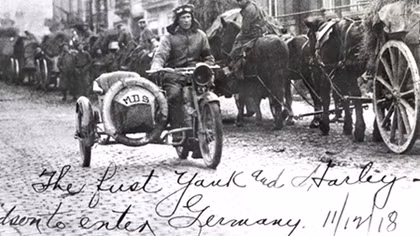 M.D.S
The first Yank and Harley-
idson to enter Germany. 11/12/18